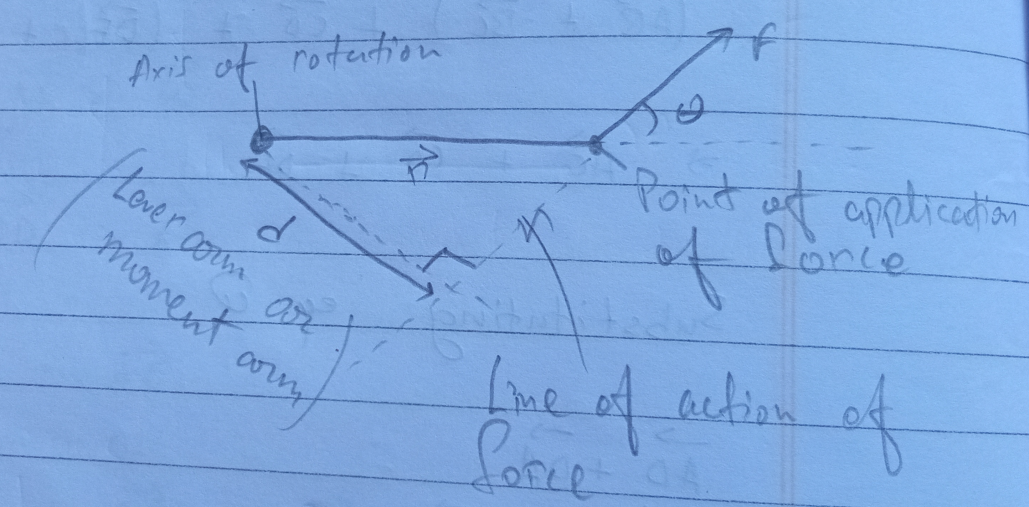 Axis of rotation
F
θ
r
Point of application
of force
d
(Lever arm or
moment arm)
Line of action of
force